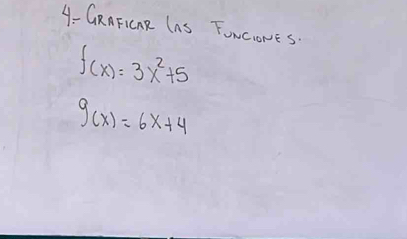 4.- GRAFICAR LAS FUNCIONES.
f(x) = 3x²+5
g(x) = 6x+4